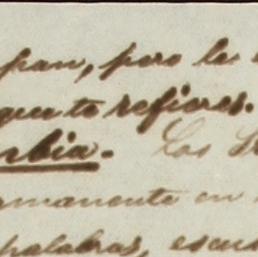 pan, pero le
que te refieres.
rbia. Los
rmanente en
palabras, escu